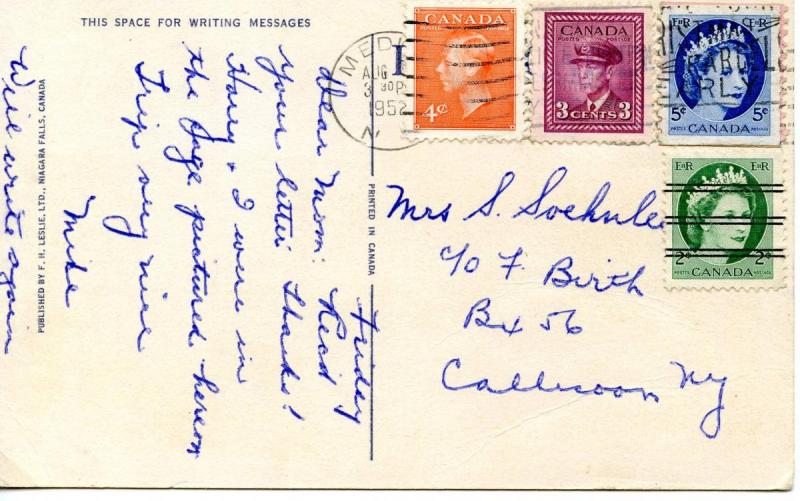 THIS SPACE FOR WRITING MESSAGES
Friday
Dear Mom: Rec'd
your letter Thanks!
Harry & I were in
the Inge pictured hereon
Trip very nice
Mike
Will write again
PUBLISHED BY F. H. LESLIE, LTD., NIAGARA FALLS, CANADA
PRINTED IN CANADA
CANADA
POSTES POSTAGE
4¢
CANADA
POSTES POSTAGE
3 CENTS 3
EIIR EIIR
5¢ 5¢
POSTES CANADA POSTAGE
EIIR EIIR
2¢ 2¢
POSTES CANADA POSTAGE
AUG
3 30P
1952
N
Mrs S. Soehnlee
c/o F. Birth
Bx 56
Callicoon Ny